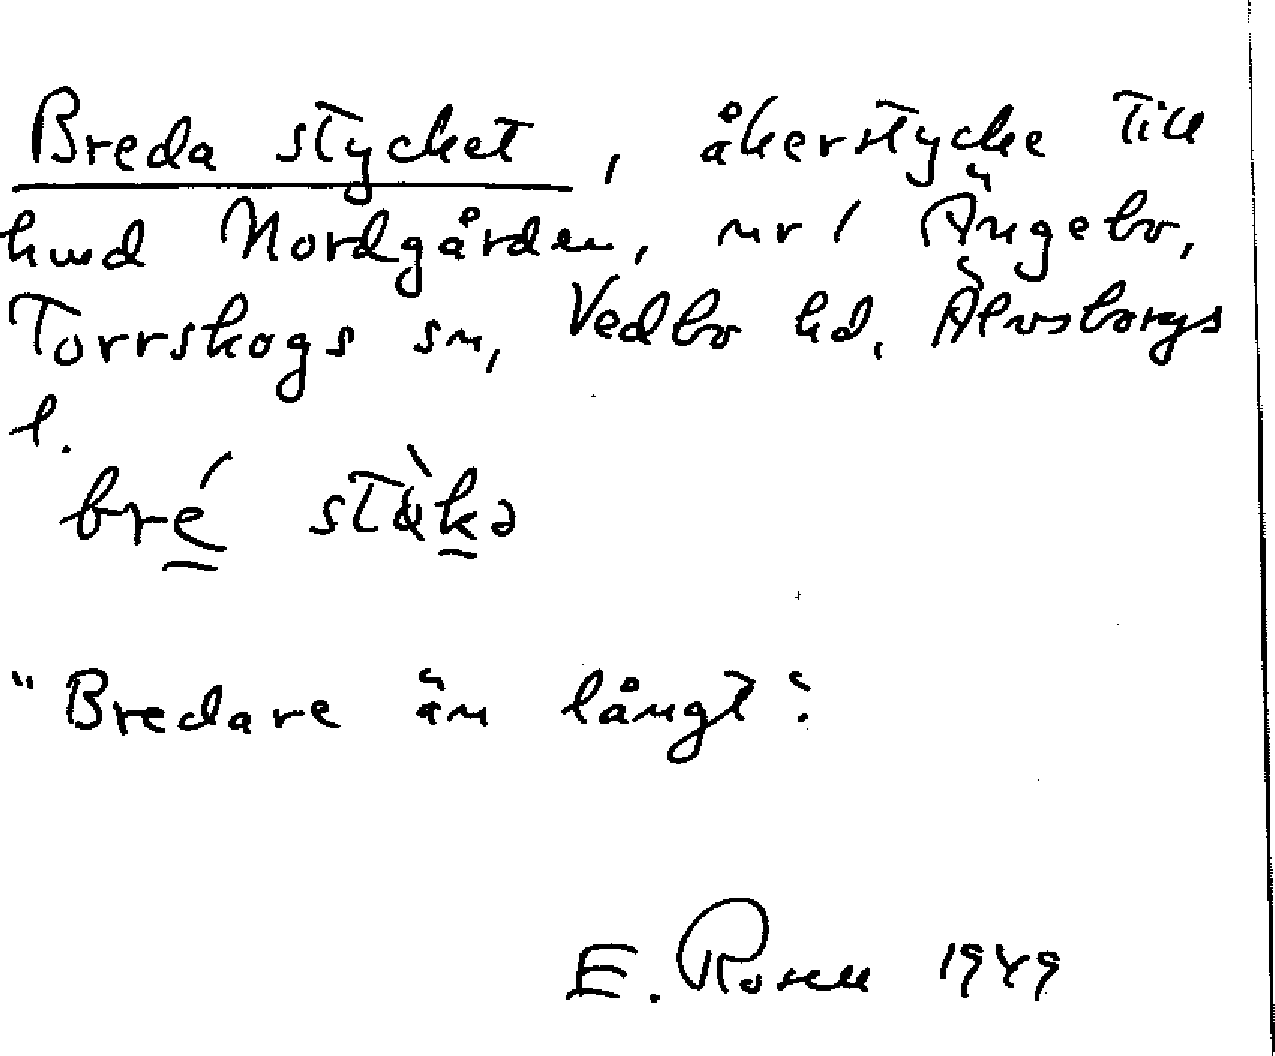 Breda stycket, åkerstycke till
hmd Nordgården, nr 1 Ängebo,
Torrskogs sn, Vedbo hd, Älvsborgs
l.
bré
"Bredare än långt".
E. Rosell 1949